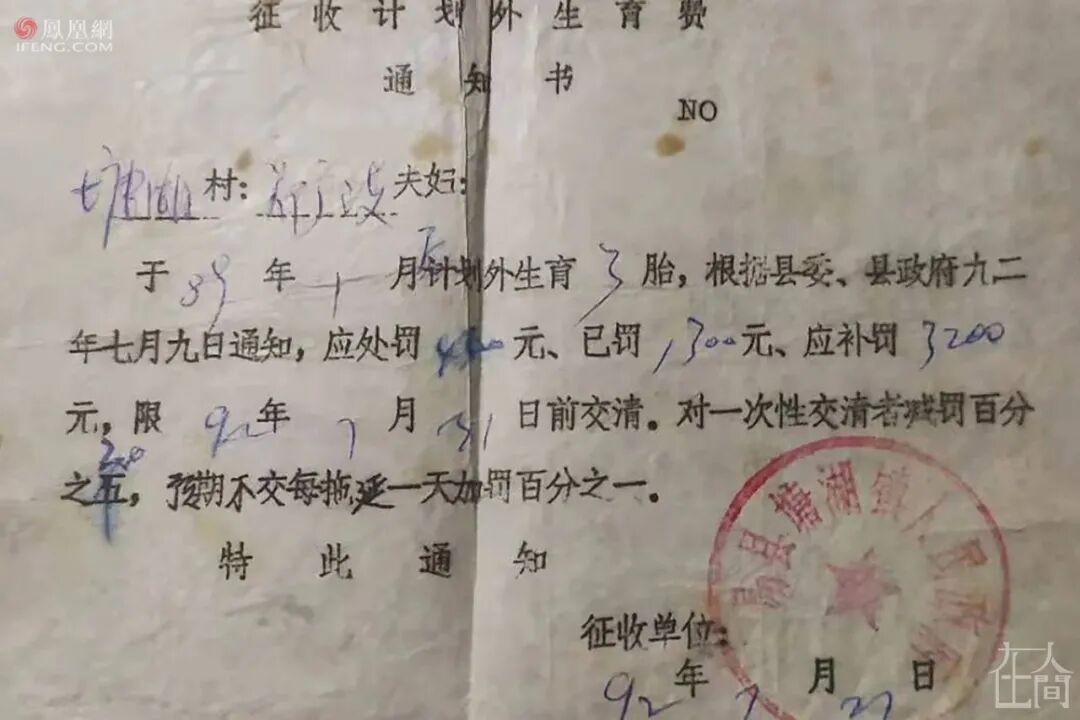 鳳凰網
IFENG.COM
征收计划外生育费
通知书
NO
塘湖村: 夫妇:
于89年1月计划外生育3胎,根据县委、县政府九二
年七月九日通知,应处罚 元、已罚1300元、应补罚3200
元,限92年7月31日前交清。对一次性交清者减罚百分
之 ,预期不交每拖延一天加罚百分之一。
特此通知
县塘湖镇人民政府
征收单位:
92年7月27日
在人間